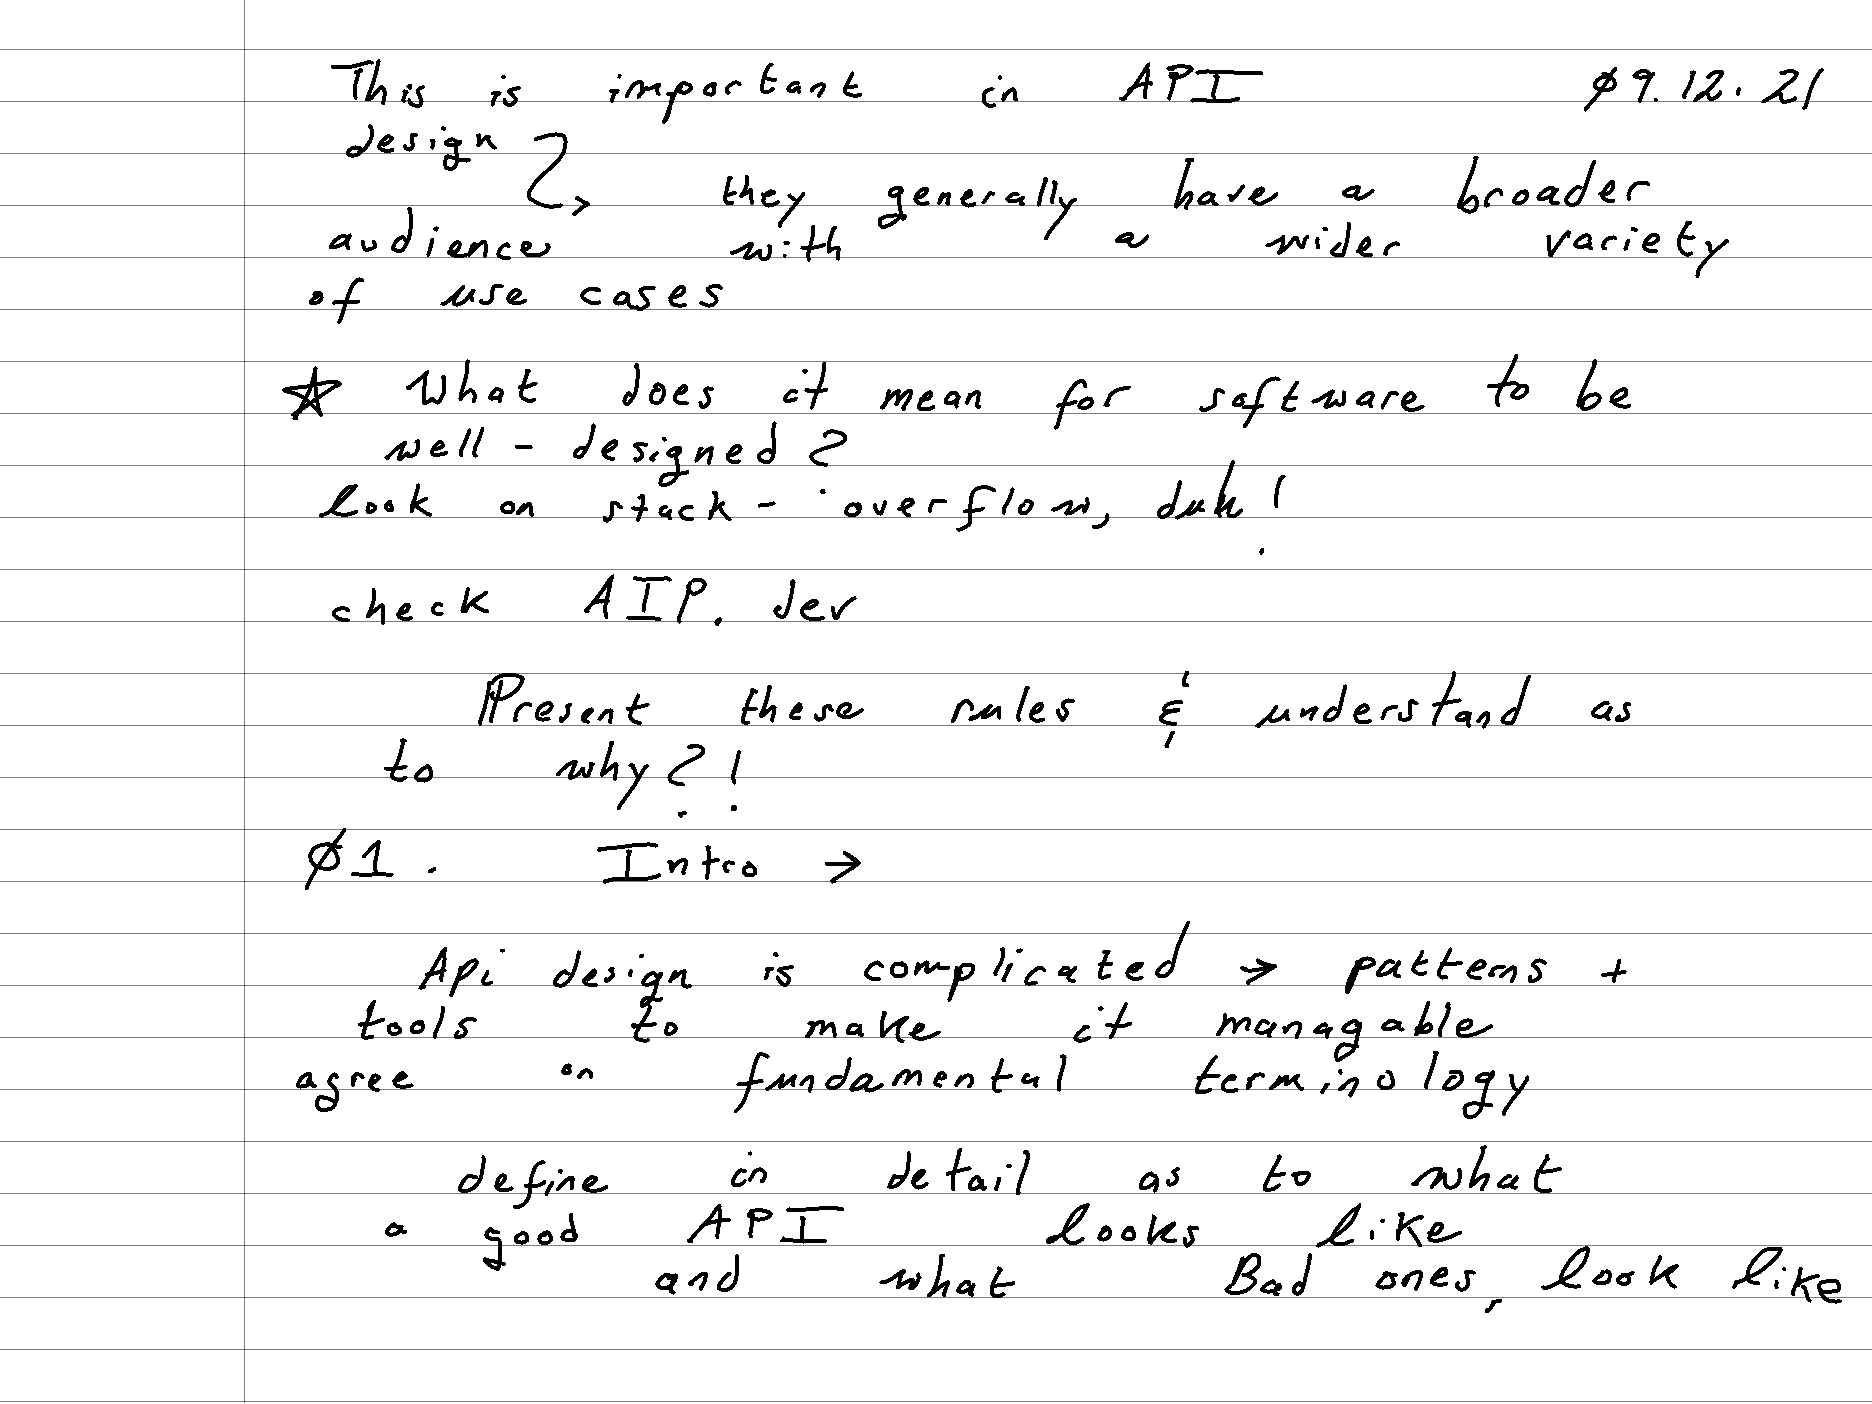 This is important in API Ø9.12.21
design
↳ they generally have a broader
audience with a wider variety
of use cases
☆ What does it mean for software to be
well - designed ?
look on stack - overflow, duh!
check AIP. dev
Present these rules & understand as
to why?!
Ø1. Intro →
Api design is complicated → patterns +
tools to make it managable
agree on fundamental terminology
define in detail as to what
a good API looks like
and what Bad ones, look like